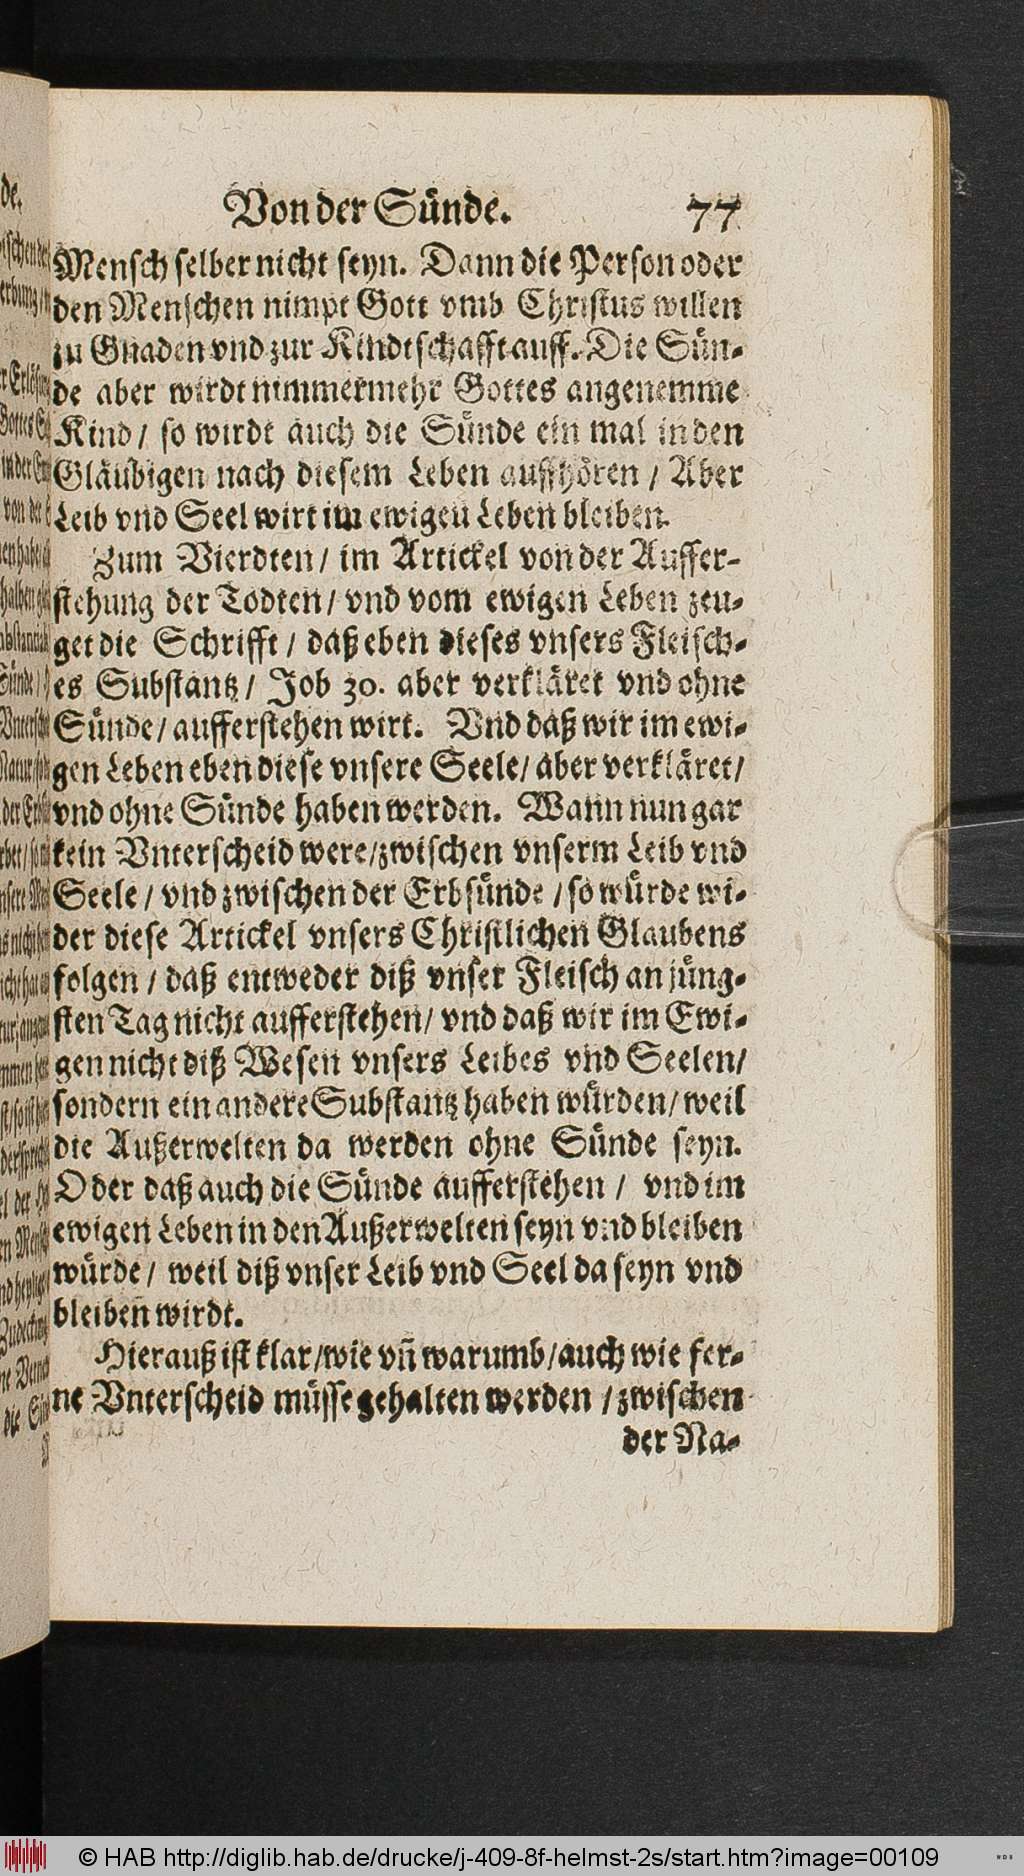 Von der Sünde. 77
Mensch selber nicht seyn. Dann die Person oder
den Menschen nimpt Gott vmb Christus willen
zu Gnaden vnd zur Kindtschafft auff. Die Sün-
de aber wirdt nimmermehr Gottes angenemme
Kind / so wirdt auch die Sünde ein mal in den
Gläubigen nach diesem Leben auffhören / Aber
Leib vnd Seel wirt im ewigen Leben bleiben.
Zum Vierdten / im Artickel von der Auffer-
stehung der Todten / vnd vom ewigen Leben zeu-
get die Schrifft / daß eben dieses vnsers Fleisch-
es Substantz / Job 30. aber verkläret vnd ohne
Sünde / aufferstehen wirt. Vnd daß wir im ewi-
gen Leben eben diese vnsere Seele / aber verkläret /
vnd ohne Sünde haben werden. Wann nun gar
kein Vnterscheid were / zwischen vnserm Leib vnd
Seele / vnd zwischen der Erbsünde / so würde wi-
der diese Artickel vnsers Christlichen Glaubens
folgen / daß entweder diß vnser Fleisch an jüng-
sten Tag nicht aufferstehen / vnd daß wir im Ewi-
gen nicht diß Wesen vnsers Leibes vnd Seelen /
sondern ein andere Substantz haben würden / weil
die Außerwelten da werden ohne Sünde seyn.
Oder daß auch die Sünde aufferstehen / vnd im
ewigen Leben in den Außerwelten seyn vnd bleiben
würde / weil diß vnser Leib vnd Seel da seyn vnd
bleiben wirdt.
Hierauß ist klar / wie vñ warumb / auch wie fer-
ne Vnterscheid müsse gehalten werden / zwischen
der Na-
© HAB http://diglib.hab.de/drucke/j-409-8f-helmst-2s/start.htm?image=00109